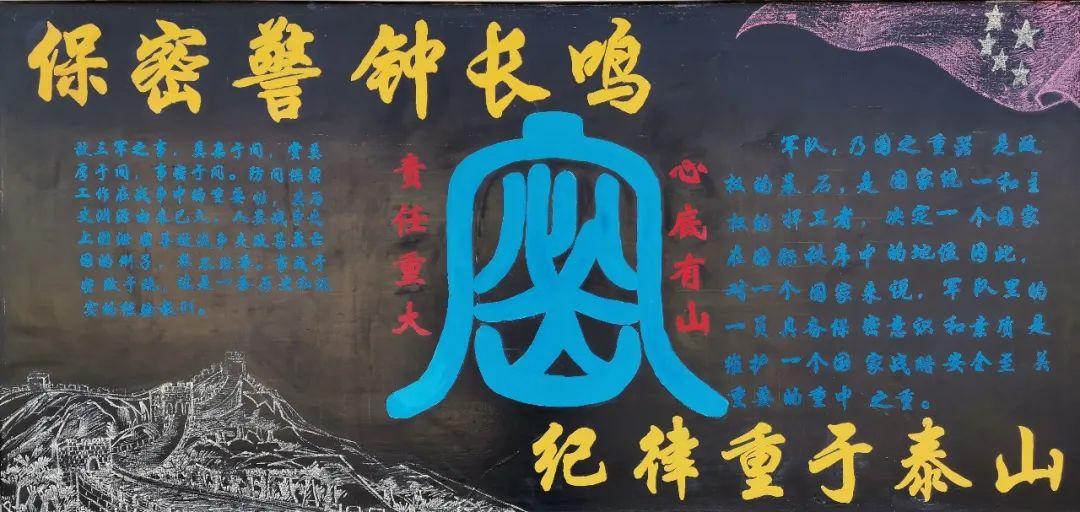 保密警钟长鸣
故三军之事，莫亲于间，赏莫
厚于间，事密于间。防间保密
工作在战争中的重要性，其历
史渊源由来已久，人类战争史
上因泄密导致战争失败甚至亡
国的例子，
密败于疏，这是一条历史和现
实的经验教训。
责任重大
密
心底有山
军队，乃国之重器 是政
权的基石，是国家统一和主
权的捍卫者，决定一个国家
在国际秩序中的地位因此，
对一个国家来说，军队里的
一员具备保密意识和素质是
维护一个国家战略安全至关
重要的重中之重。
纪律重于泰山